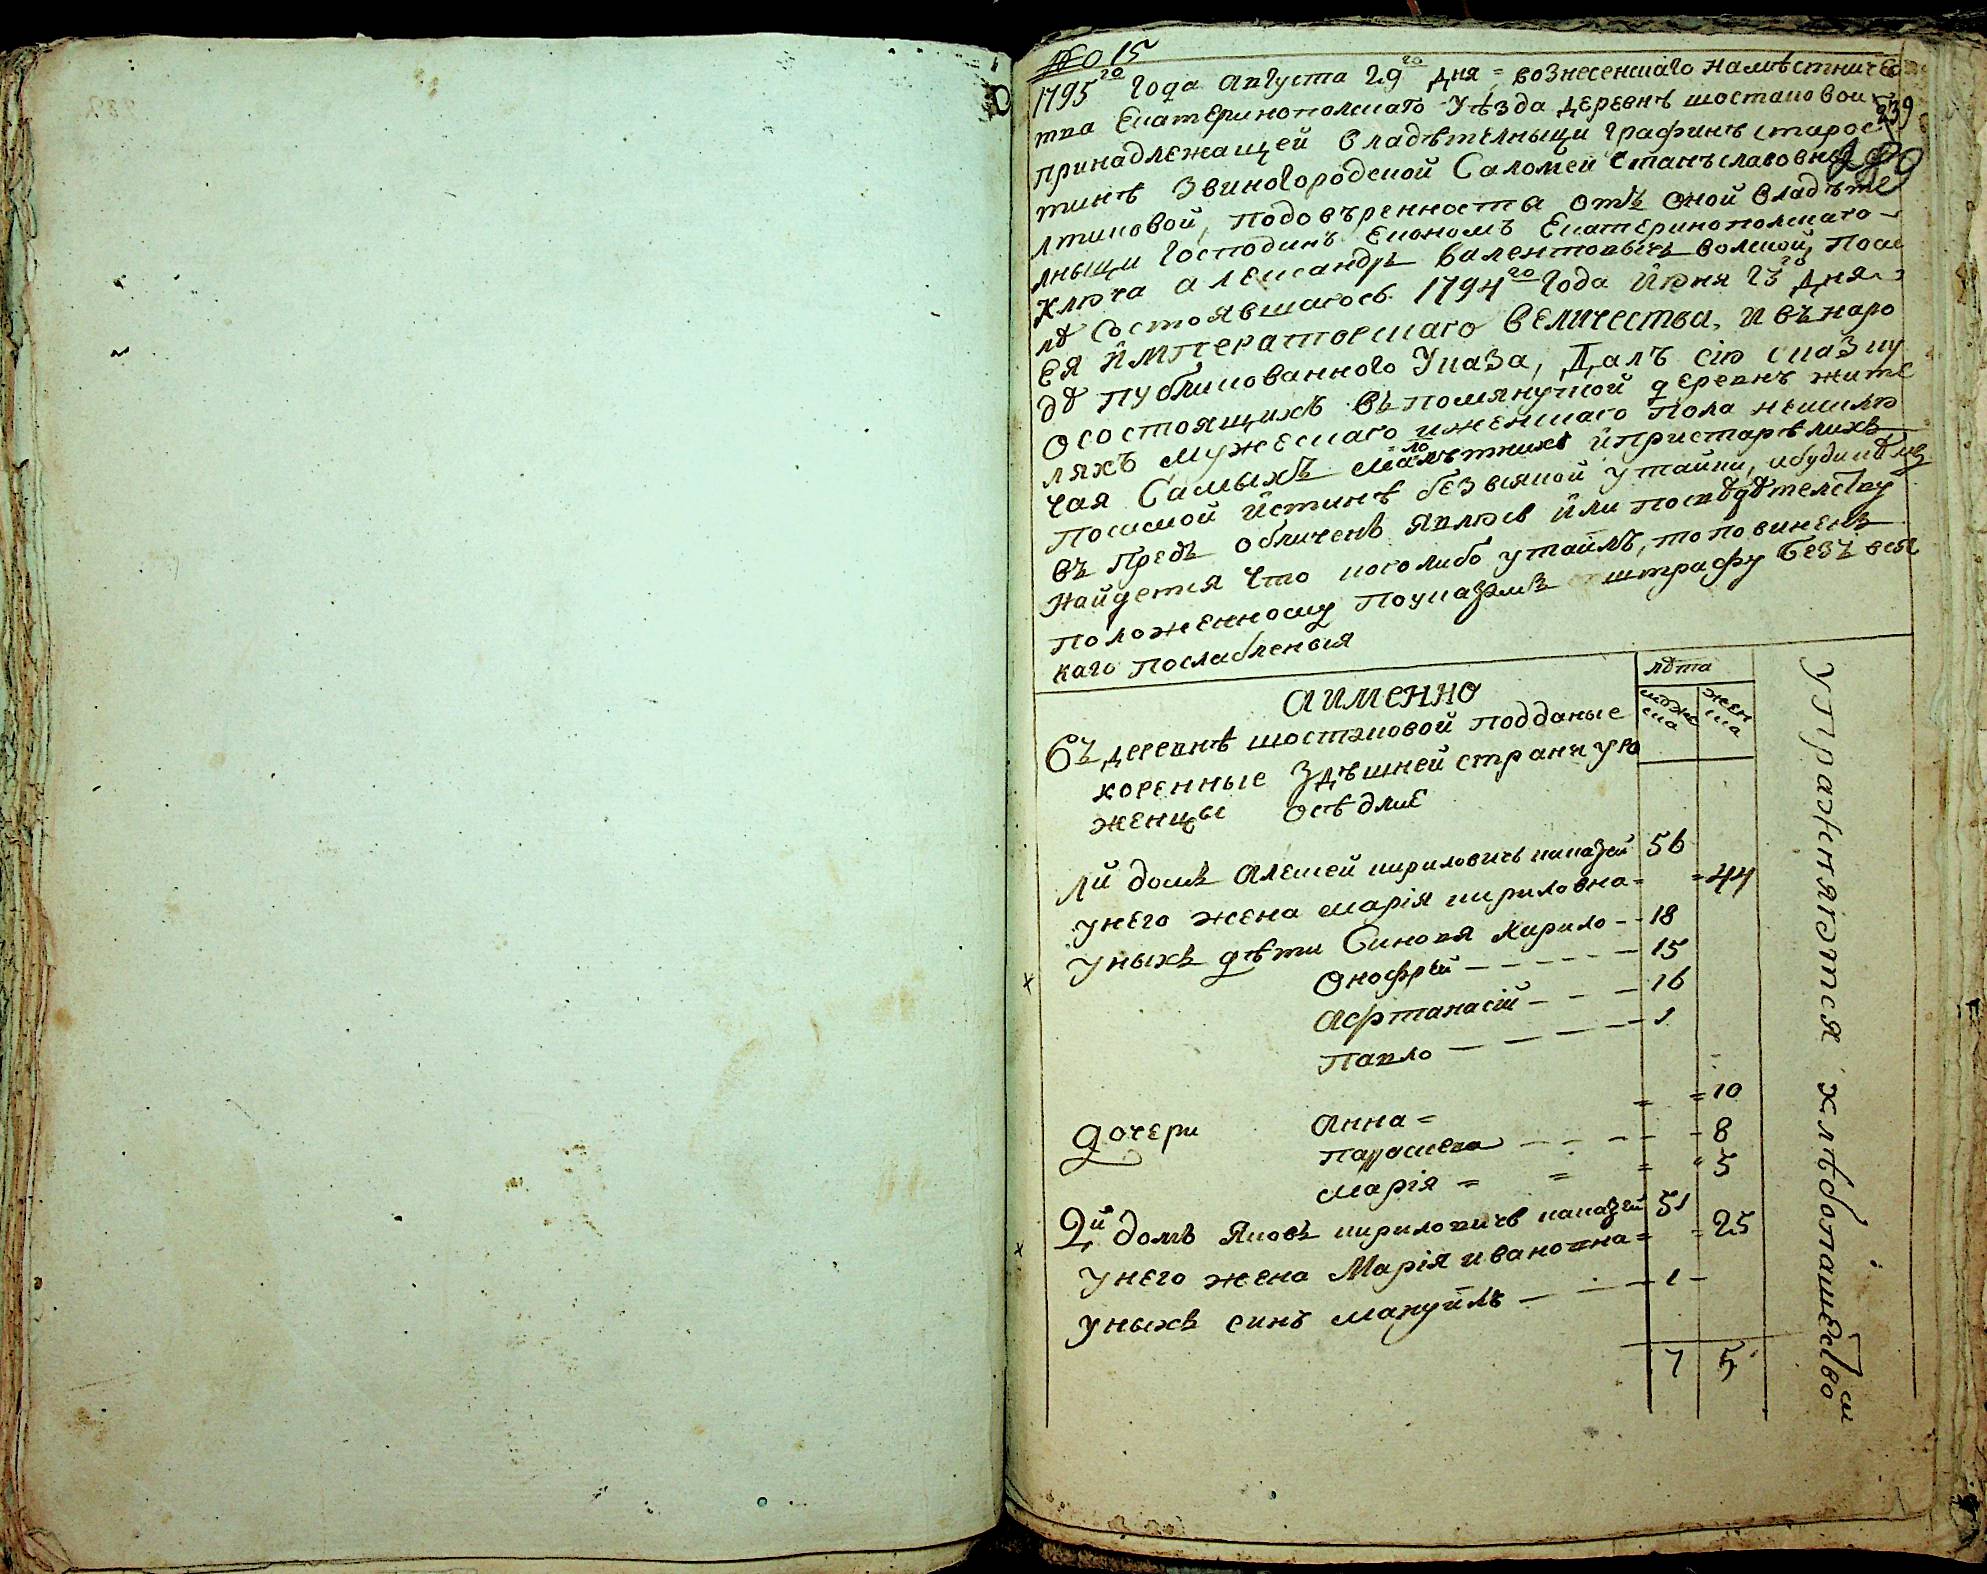 № 15
1795го года августа 29го дня = вознесенскаго намѣстничес
тва Екатеринополскаго уѣзда деревнѣ шостаковой
239
принадлежащей владѣтелныци графинѣ старос
тинѣ Звиногородской Саломеи Станъславовны
лтиковой, подовѣренности отъ оной владѣте
лныци Господинъ Економъ Екатеринополскаго
ключа александръ валентовычъ волской, после
лѣ состоявшагось 1794го года июня 23го дня
Ея императорскаго величества, и въ наро
дѣ публикованного указа, Далъ сию сказку
о состоящихъ въ помянутой деревнѣ жите
ляхъ мужескаго и женскаго пола неиклю
чая Самыхъ малолѣтнихъ и пристарѣлихъ
по самой истинѣ без всякой утайки, и буди
въ предъ обличенъ явлюсь или по свѣдѣтелству
найдется что коголибо утаилъ, то повиненъ
положенному по указамъ штрафу безъ вся
каго послабленыя
аименно
лѣта
муже ска
жен ска
въ деревнѣ шостаковой подданые
коренные здѣшней страны уро
женцы осѣдлие
1й домъ алексей кириловичъ каказей 56
унего жена марія кириловна = = 44
уныхъ дѣти Синовя кирило - - 18
Онофрый - - - - - 15
афтанасій - - - 16
павло - - - - - 1
дочери анна = = = 10
параскева - - - - - 8
марія = = = 5
2й домъ яковъ кириловичъ каказей 51
унего жена Марія ивановна = = 25
уныхъ синъ мануйлъ - - - 1 -
7 5
упражняются клѣбопашество